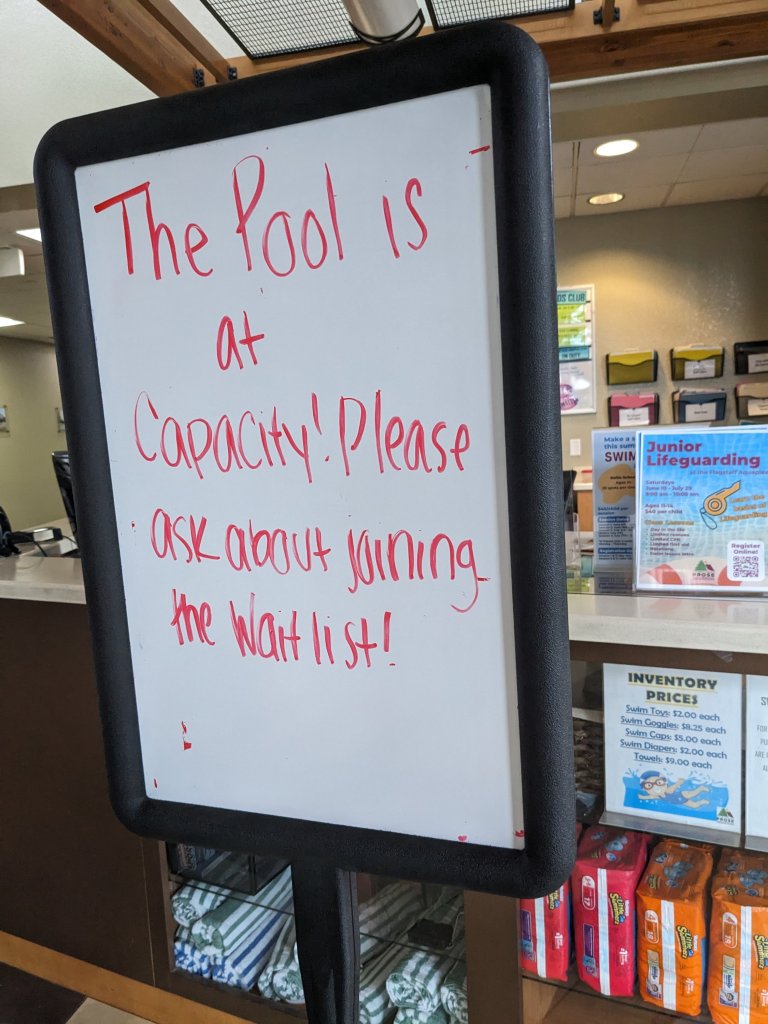 The Pool is
at
Capacity! Please
ask about joining
the Wait list!
DS CLUB
ON DUTY
Make a
this sum
SWIM
Junior
Lifeguarding
at the Flagstaff Aquaplex
Saturdays
June 10 - July 29
9:00 am - 10:00 am
Ages 11-14
$40 per child
Learn the
basics of
Lifeguarding
Register
Online!
PROSE
INVENTORY
PRICES
Swim Toys: $2.00 each
Swim Goggles: $8.25 each
Swim Caps: $5.00 each
Swim Diapers: $2.00 each
Towels: $9.00 each
PROSE
FOR
PU
ARE
Little
Swimmers
17
Little
Swimmers
Little
Swimmers